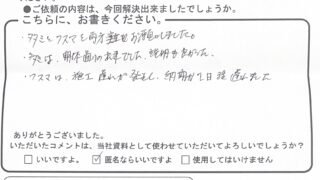 ●ご依頼の内容は、今回解決出来ましたでしょうか。
こちらに、お書きください。
・タタミとフスマを両方お願いしました。
・は、説明もよかった。
・フスマは、施工 遅れが発生し、納期が1日
ありがとうございました。
いただいたコメントは、当社資料として使わせていただいてよろしいでしょうか?
□いいですよ。 ☑匿名ならいいですよ □使用してはいけません